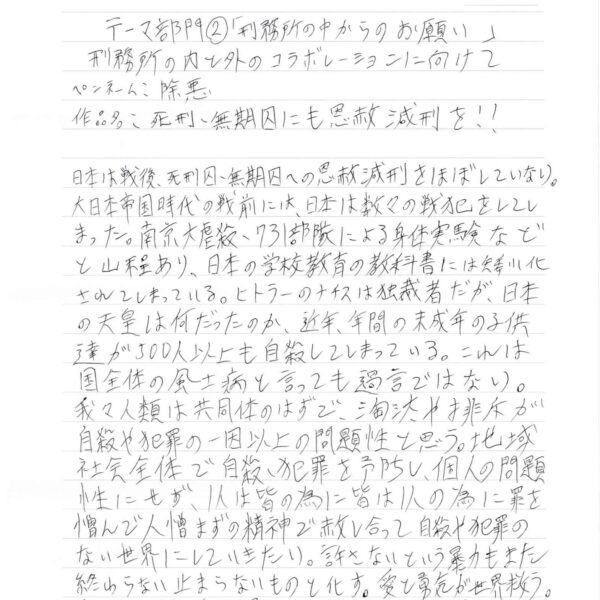 テーマ部門②「刑務所の中からのお願い」
刑務所の内と外のコラボレーションに向けて
ペンネーム:除悪
作品名:死刑、無期囚にも恩赦減刑を!!
日本は戦後、死刑囚、無期囚への恩赦減刑をほぼしていない。
大日本帝国時代の戦前には、日本は数々の戦犯をしてし
まった。南京大虐殺、731部隊による身体実験など
と山程あり、日本の学校教育の教科書には矮小化
されてしまっている。ヒトラーのナチスは独裁者だが、日本
の天皇は何だったのか、近年、年間の未成年の子供
達が500人以上も自殺してしまっている。これは
国全体の風土病と言っても過言ではない。
我々人類は共同体のはずで、淘汰や排斥が
自殺や犯罪の一因以上の問題性と思う。地域
社会全体で自殺、犯罪を予防し、個人の問題
性にせず、1人は皆の為に皆は1人の為に罪を
憎んで人憎まずの精神で赦し合って自殺や犯罪の
ない世界にしていきたい。許さないという暴力もまた
終わらない止まらないものと化す。愛と勇気が世界救う。